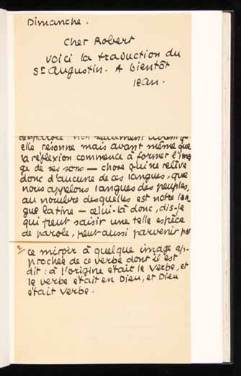 Dimanche.
Cher Robert
voici la traduction du
St Augustin. A bientôt
Jean.
elle résonne mais avant même que
la réflexion commence à former l'ima
ge de ses sons — chose qui ne relève
donc d'aucune de ces langues, que
nous appelons langues des peuples,
au nombre desquelles est notre lan
gue latine — celui-là donc, dis-je
qui peut saisir une telle espèce
de parole, peut aussi parvenir par
ce miroir à quelque image ap-
prochée de ce verbe dont il est
dit: à l'origine était le Verbe, et
le verbe était en Dieu, et Dieu
était Verbe.